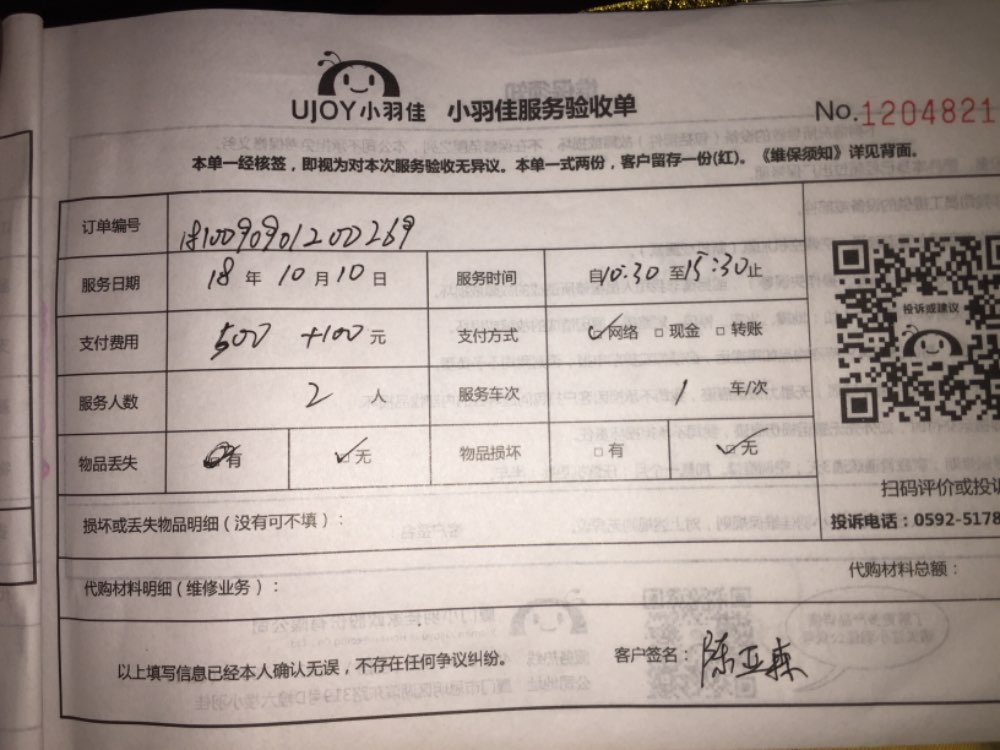 UJOY小羽佳 小羽佳服务验收单 No.1204821
本单一经核签，即视为对本次服务验收无异议。本单一式两份，客户留存一份(红)。《维保须知》详见背面。
订单编号 181009090120026９
服务日期 18 年 10 月 10 日 服务时间 自10:30 至15:30止
支付费用 500 +100 元 支付方式 网络 现金 转账
服务人数 2 人 服务车次 1 车/次
物品丢失 有 无 物品损坏 有 无
投诉或建议
扫码评价或投诉
投诉电话：0592-5178
损坏或丢失物品明细（没有可不填）：
代购材料明细（维修业务）： 代购材料总额：
以上填写信息已经本人确认无误，不存在任何争议纠纷。 客户签名：陈亚森